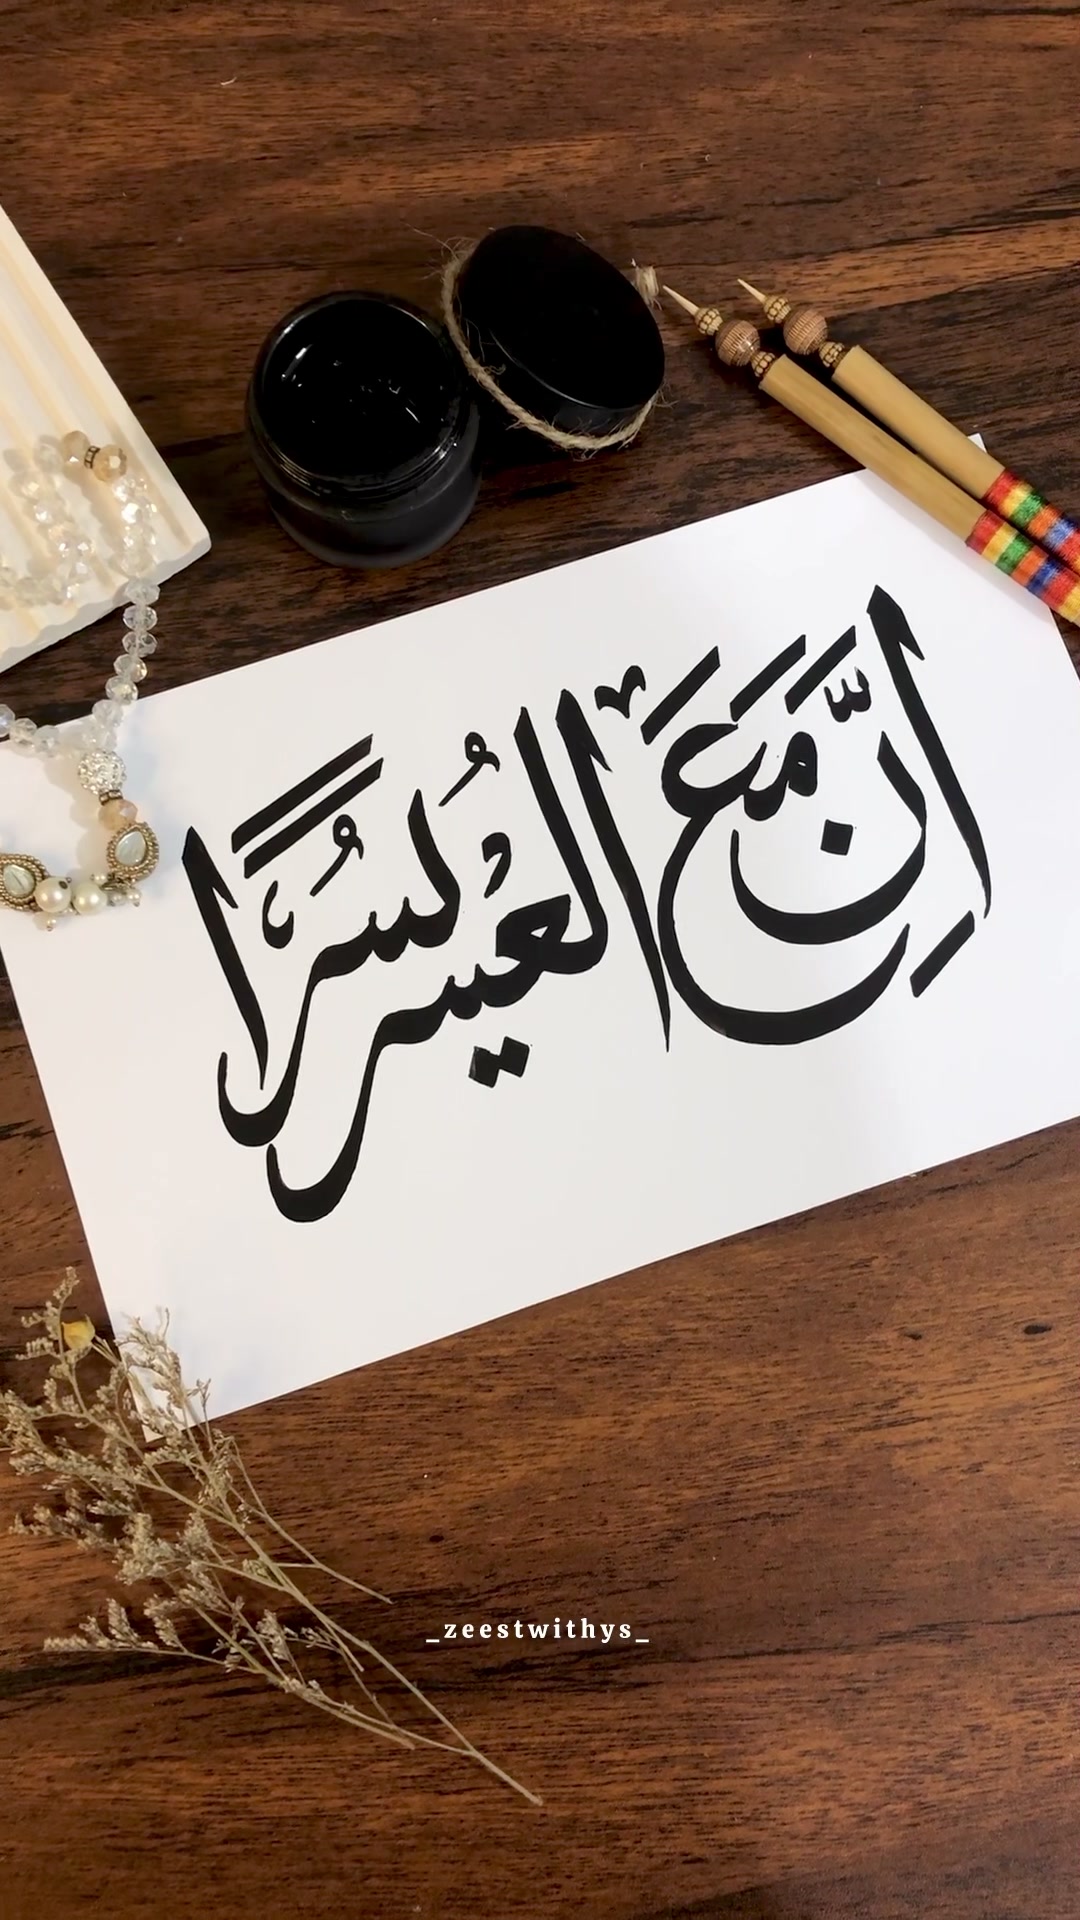 اِنَّ مَعَ الْعُسْرِ يُسْرًا
_zeestwithys_